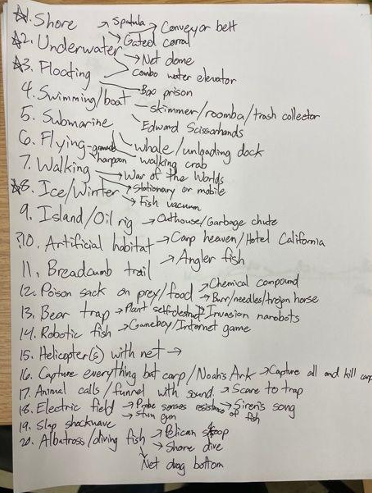 1. Shore → Spatula → Conveyor belt
→ Gated corral
2. Underwater → Net dome
3. Floating → Combo water elevator
→ Box prison
4. Swimming/boat → skimmer/roomba/trash collector
→ Edward Scissorhands
5. Submarine
→ whale/unloading dock
6. Flying - harpoon
→ walking crab
7. Walking → War of the Worlds
→ Stationary or mobile
8. Ice/Winter → Fish vacuum
9. Island/Oil rig → Outhouse/Garbage chute
?10. Artificial habitat → Carp heaven/Hotel California
→ Angler fish
11. Breadcrumb trail
12. Poison sack on prey/food → Chemical compound
→ Burr/needles/trojan horse
13. Bear trap → Plant self-destruct → Invasion nanobots
14. Robotic fish → Gameboy/Internet game
15. Helicopter(s) with net →
16. Capture everything but carp/Noah's Ark → Capture all and kill carp
17. Animal calls/funnel with sound → Scare to trap
18. Electric field → Probe senses resistance of fish → Siren's song
→ Stun gun
19. Slap shockwave
20. Albatross/diving fish → Pelican scoop
→ Shore dive
Net drag bottom